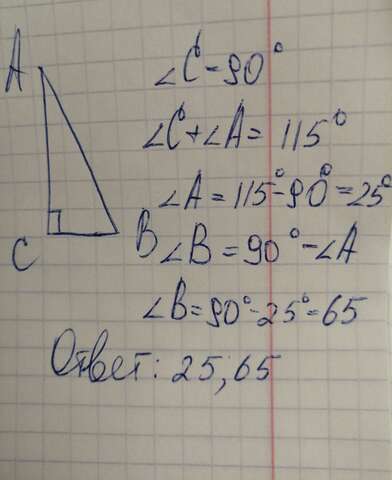 A
∠C = 90°
∠C + ∠A = 115°
∠A = 115° - 90° = 25°
C
B
∠B = 90° - ∠A
∠B = 90° - 25° = 65
Ответ: 25; 65